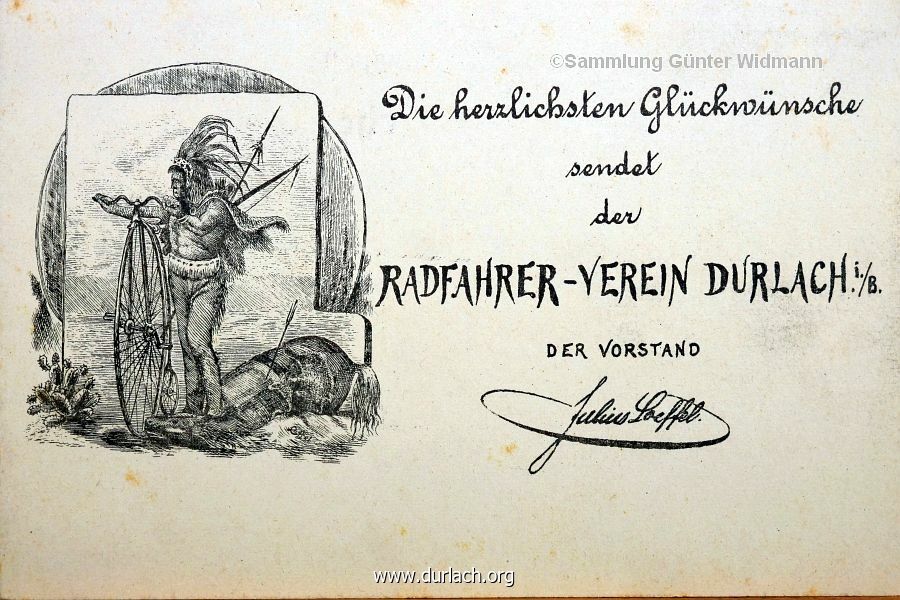 ©Sammlung Günter Widmann
Die herzlichsten Glückwünsche
sendet
der
RADFAHRER-VEREIN DURLACH i./B.
DER VORSTAND
Julius Loeffel.
www.durlach.org